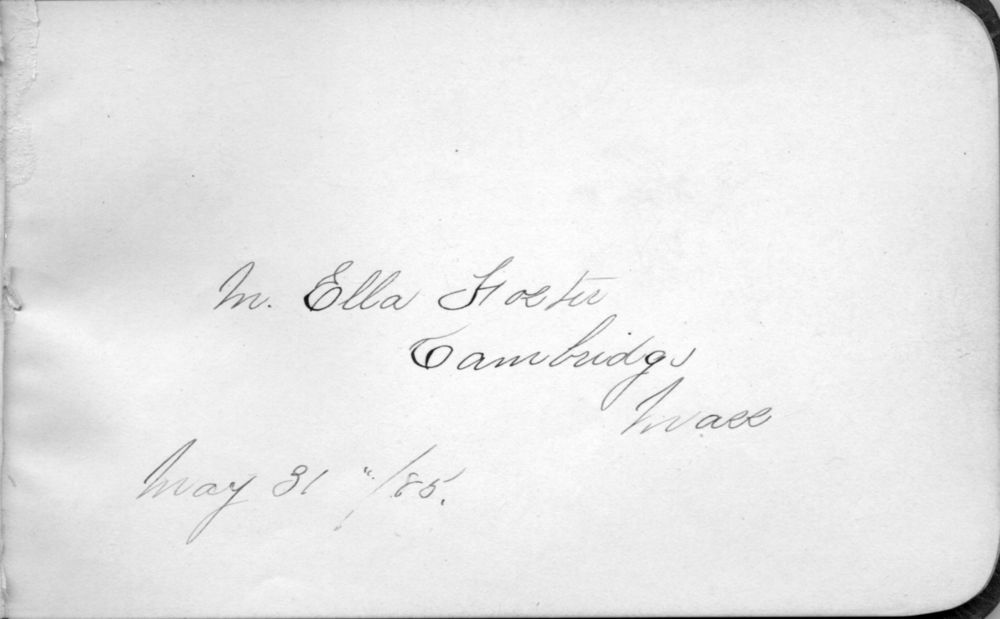 M. Ella Foster
Cambridge
Mass
May 31 "/85.